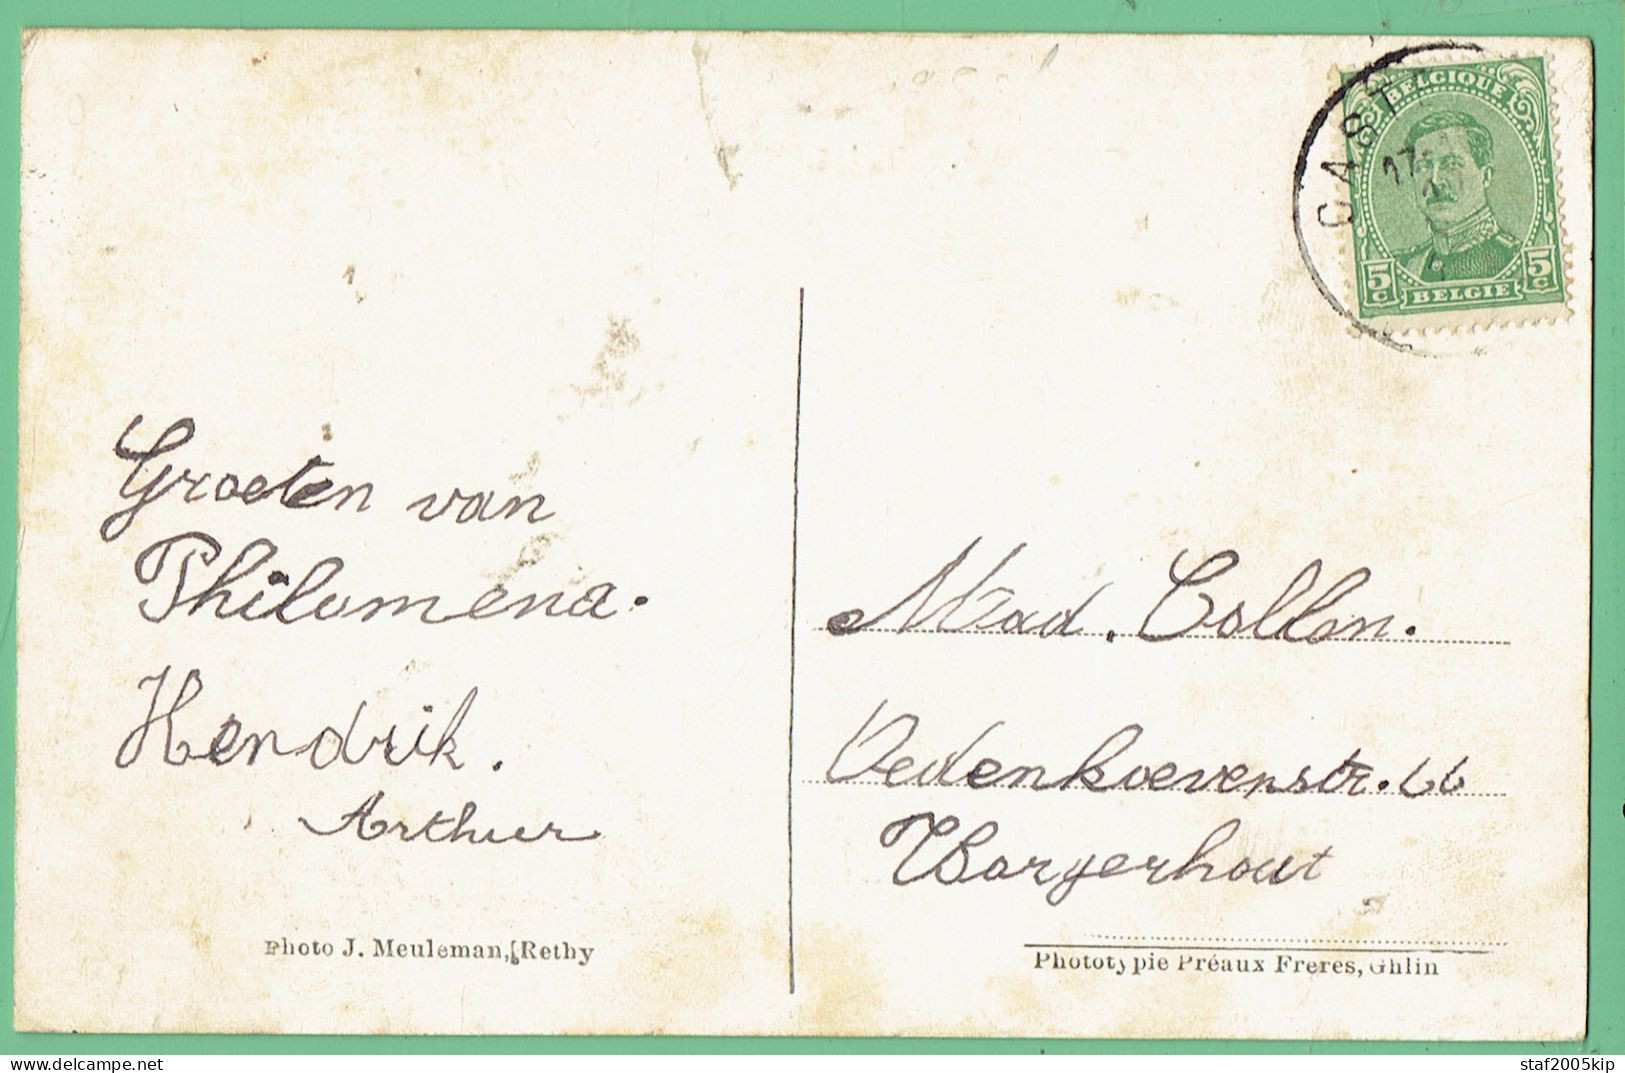 Groeten van
Philomena.
Hendrik.
Arthur
Photo J. Meuleman, Rethy
CAST
17
BELGIQUE
5c
5c
BELGIE
Mad. Collon.
Vedenkoevenstr. 66
Borgerhout
Phototypie Préaux Freres, Ghlin
delcampe.net
staf2005kip